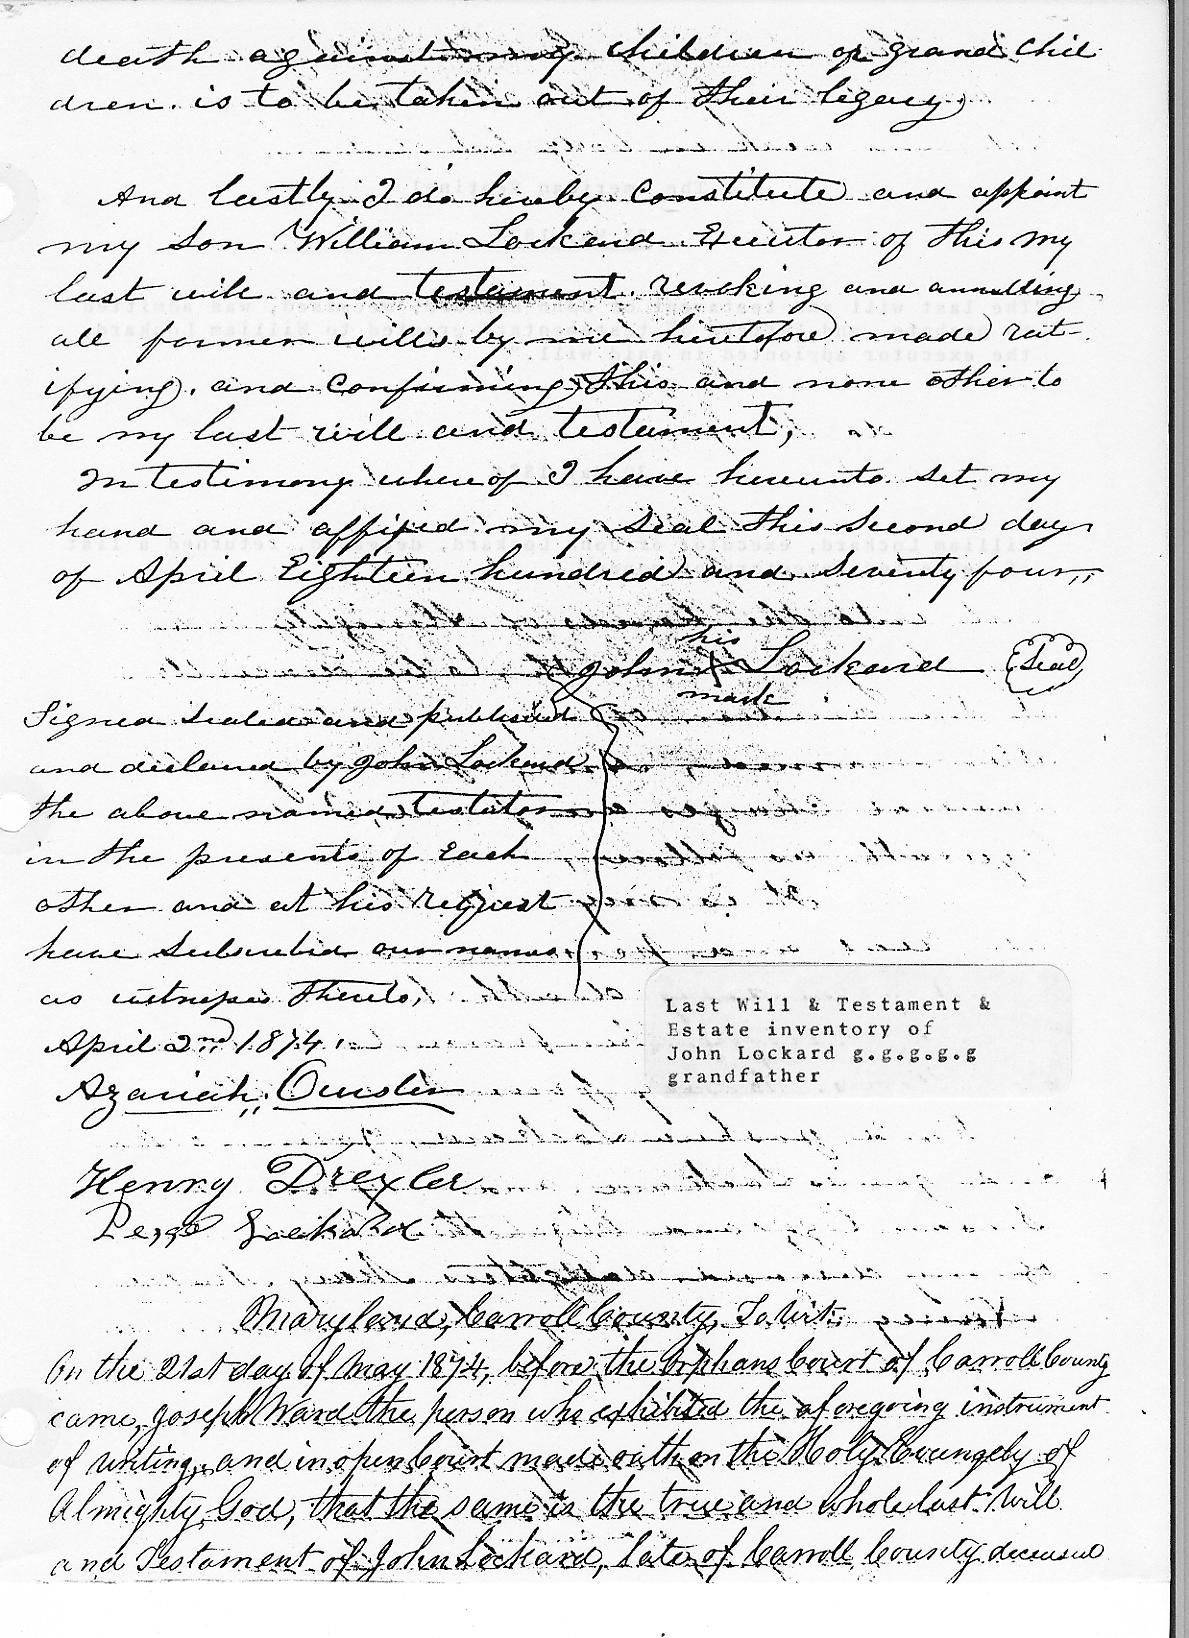 death against my children or grand chil
dren. is to be taken out of their legacy,
And lastly I do hereby Constitute and appoint
my son William Lockard Executor of this my
last will and testament. revoking and annulling
all former wills by me heretofore made rat-
ifying. and Confirming this and none other to
be my last will and testament,
In testimony whereof I have hereunto set my
hand and affixed my seal this second day
of April Eighteen hundred and Seventy four,,
his
John X Lockard Seal
mark
Signed sealed and published
and declared by John Lockard
the above named testator
in the presents of Each
other and at his request
have subscribed our names
as witnesses thereto,
April 2nd 1874.
Azariah,, Oursler
Henry Drexler
Lockard
Last Will & Testament &
Estate inventory of
John Lockard g.g.g.g.g
grandfather
Maryland, Carroll County, To Wit:
On the 21st day of May 1874, before the Orphans Court of Carroll County
came, Joseph Ward the person who exhibited the aforegoing instrument
of writing, and in open Court made oath on the Holy Evangely of
Almighty God, that the same is the true and whole last Will
and Testament of John Lockard, late of Carroll County deceased